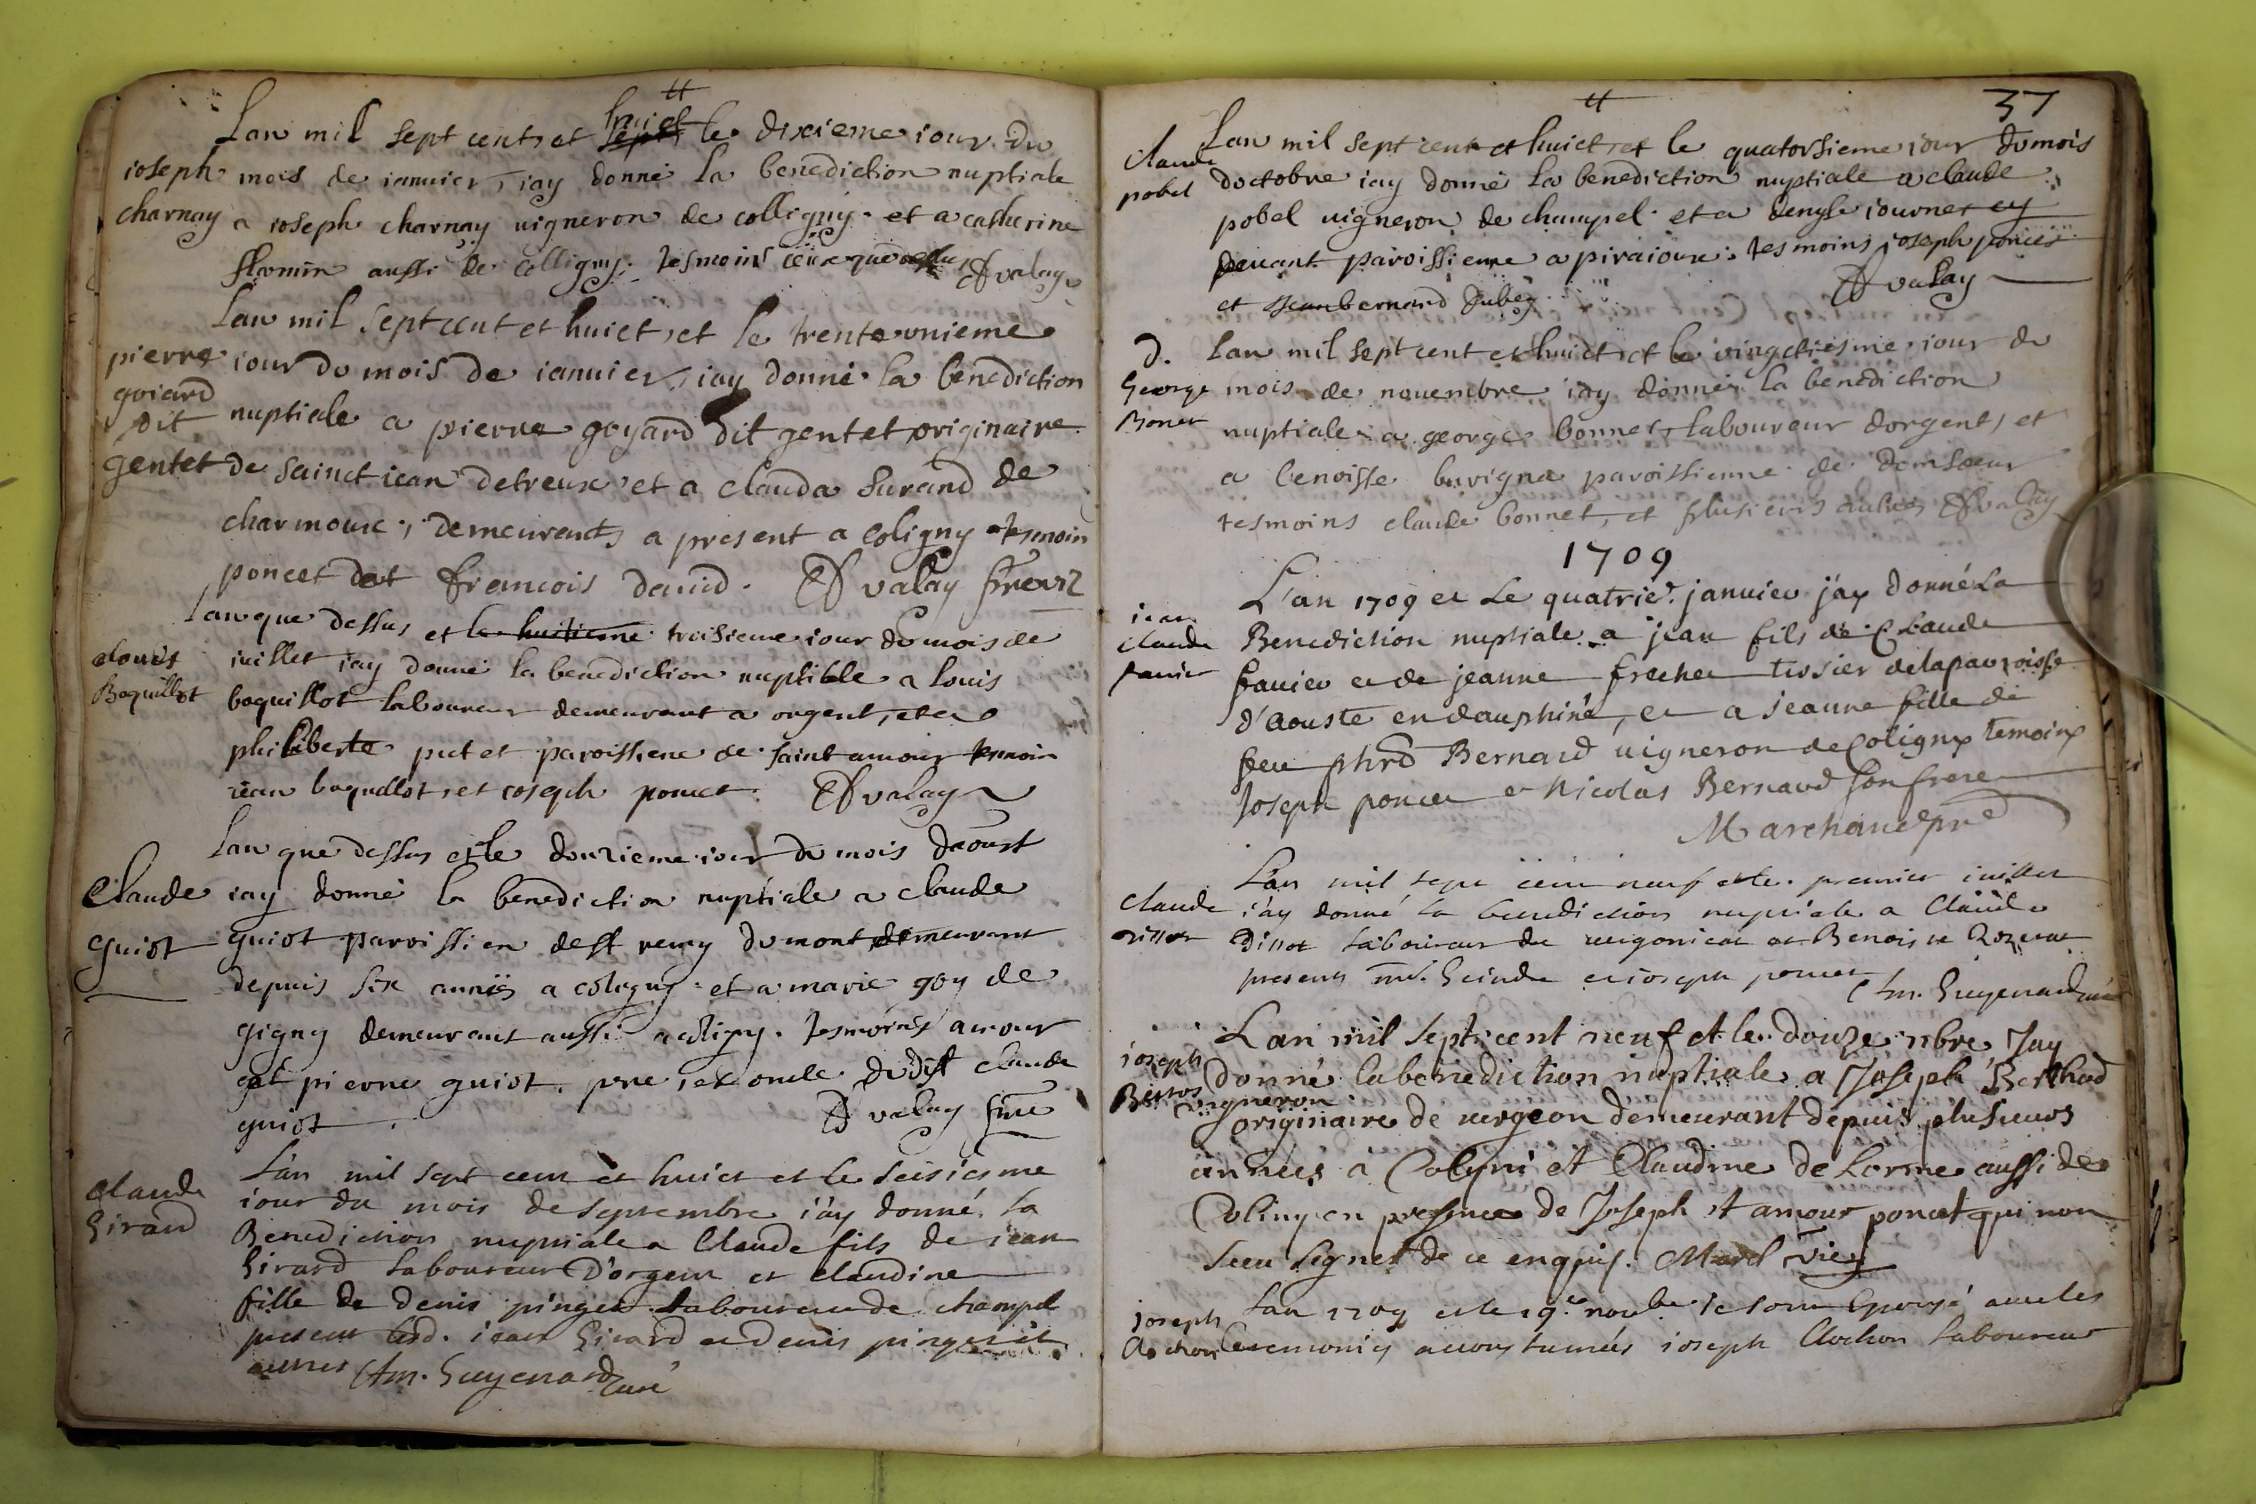 Lan mil sept cent et huict le dixieme iour du
ioseph charnay
mois de ianuier, iay donné la benediction nuptiale
a ioseph charnay uigneron de colligny. et a catherine
flamin aussi de colligny. tesmoins ceux que dessus Valay
Lan mil sept cent et huict, et le trente unieme
pierre goiard dit gentet
iour du mois de ianuier, iay donné la benediction
nuptiale a pierre goyard dit gentet originaire
de sainct iean detreux et a clauda surand de
charmoux, demeurents a present a coligny tesmoin
poncet et francois dauid. Valay
Lan que dessus et le huitieme troisieme iour du mois de
louis Boquillot
iuillet iay donné la benediction nuptiale a louis
boquillot laboureur demeurant a orgent, et a
philiberte putet paroissiene de saint amour tesmoin
iean boquillot, et ioseph poncet. Valay
Lan que dessus et le douzieme iour du mois daoust
Claude guiot
iay donné la benediction nuptiale a claude
guiot paroissien de st remy du mont demeurant
depuis six années a coligny et a marie goy de
gigny demeurant aussi a coligny. tesmoins amour
et pierre guiot, pere, et oncle dudist claude
guiot. Valay
L'an mil sept cent et huict et le seisiesme
Claude Girard
iour du mois de septembre i'ay donné la
Benediction nuptiale a Claude fils de iean
Girard laboureur d'orgent et claudine
fille de denis pinget laboureur de champel
present lesd. iean Girard et denis pinget et
autres Am. Guyenard curé
37
Lan mil sept cent et huict, et le quatorsieme iour du mois
Claude pobel
doctobre iay donné la benediction nuptiale a claude
pobel uigneron de champel. et a denyse iournet cy
deuant paroissienne a piraioux. tesmoins ioseph poncet
et iean bernard Valay
D. George Bonet
Lan mil sept cent et huict, et le vingtiesme iour du
mois de nouembre iay donné la benediction
nuptiale a george bonnet, laboureur dorgent, et
a benoiste buvigna paroissienne de domsoeur
tesmoins claude bonnet, et plusieurs autres Valay
1709
L'an 1709 et Le quatrie. januier j'ay donné La
iean claude fauier
Benediction nuptiale a jean fils de Claude
fauier et de jeanne frechet tissier de la parroisse
d'Aouste en dauphiné, et a Jeanne fille de
feu phrd Bernard uigneron de Coligny temoins
Joseph poncet et Nicolas Bernard son frere
Marchand
L'an mil sept cent neuf et le. premier iuillet
claude
i'ay donné la benediction nuptiale a Claude
laboureur de uergonicat et Benoiste
presents et ioseph poncet Am. Guyenard curé
Lan mil sept cent neuf et le douze Jay
ioseph
donné la benediction nuptiale a Joseph Berthod
vigneron
originaire de uergeon demeurant depuis plusieurs
années a Coligni et Claudine de Lorme aussi de
Coligny en presence de Joseph et amour poncet qui non
sceu signer de ce enquis.
ioseph Clochon
Lan 1709 et le 19e noube. ie soub Epousé auec les
Ceremonies accoustumées ioseph Clochon laboureur